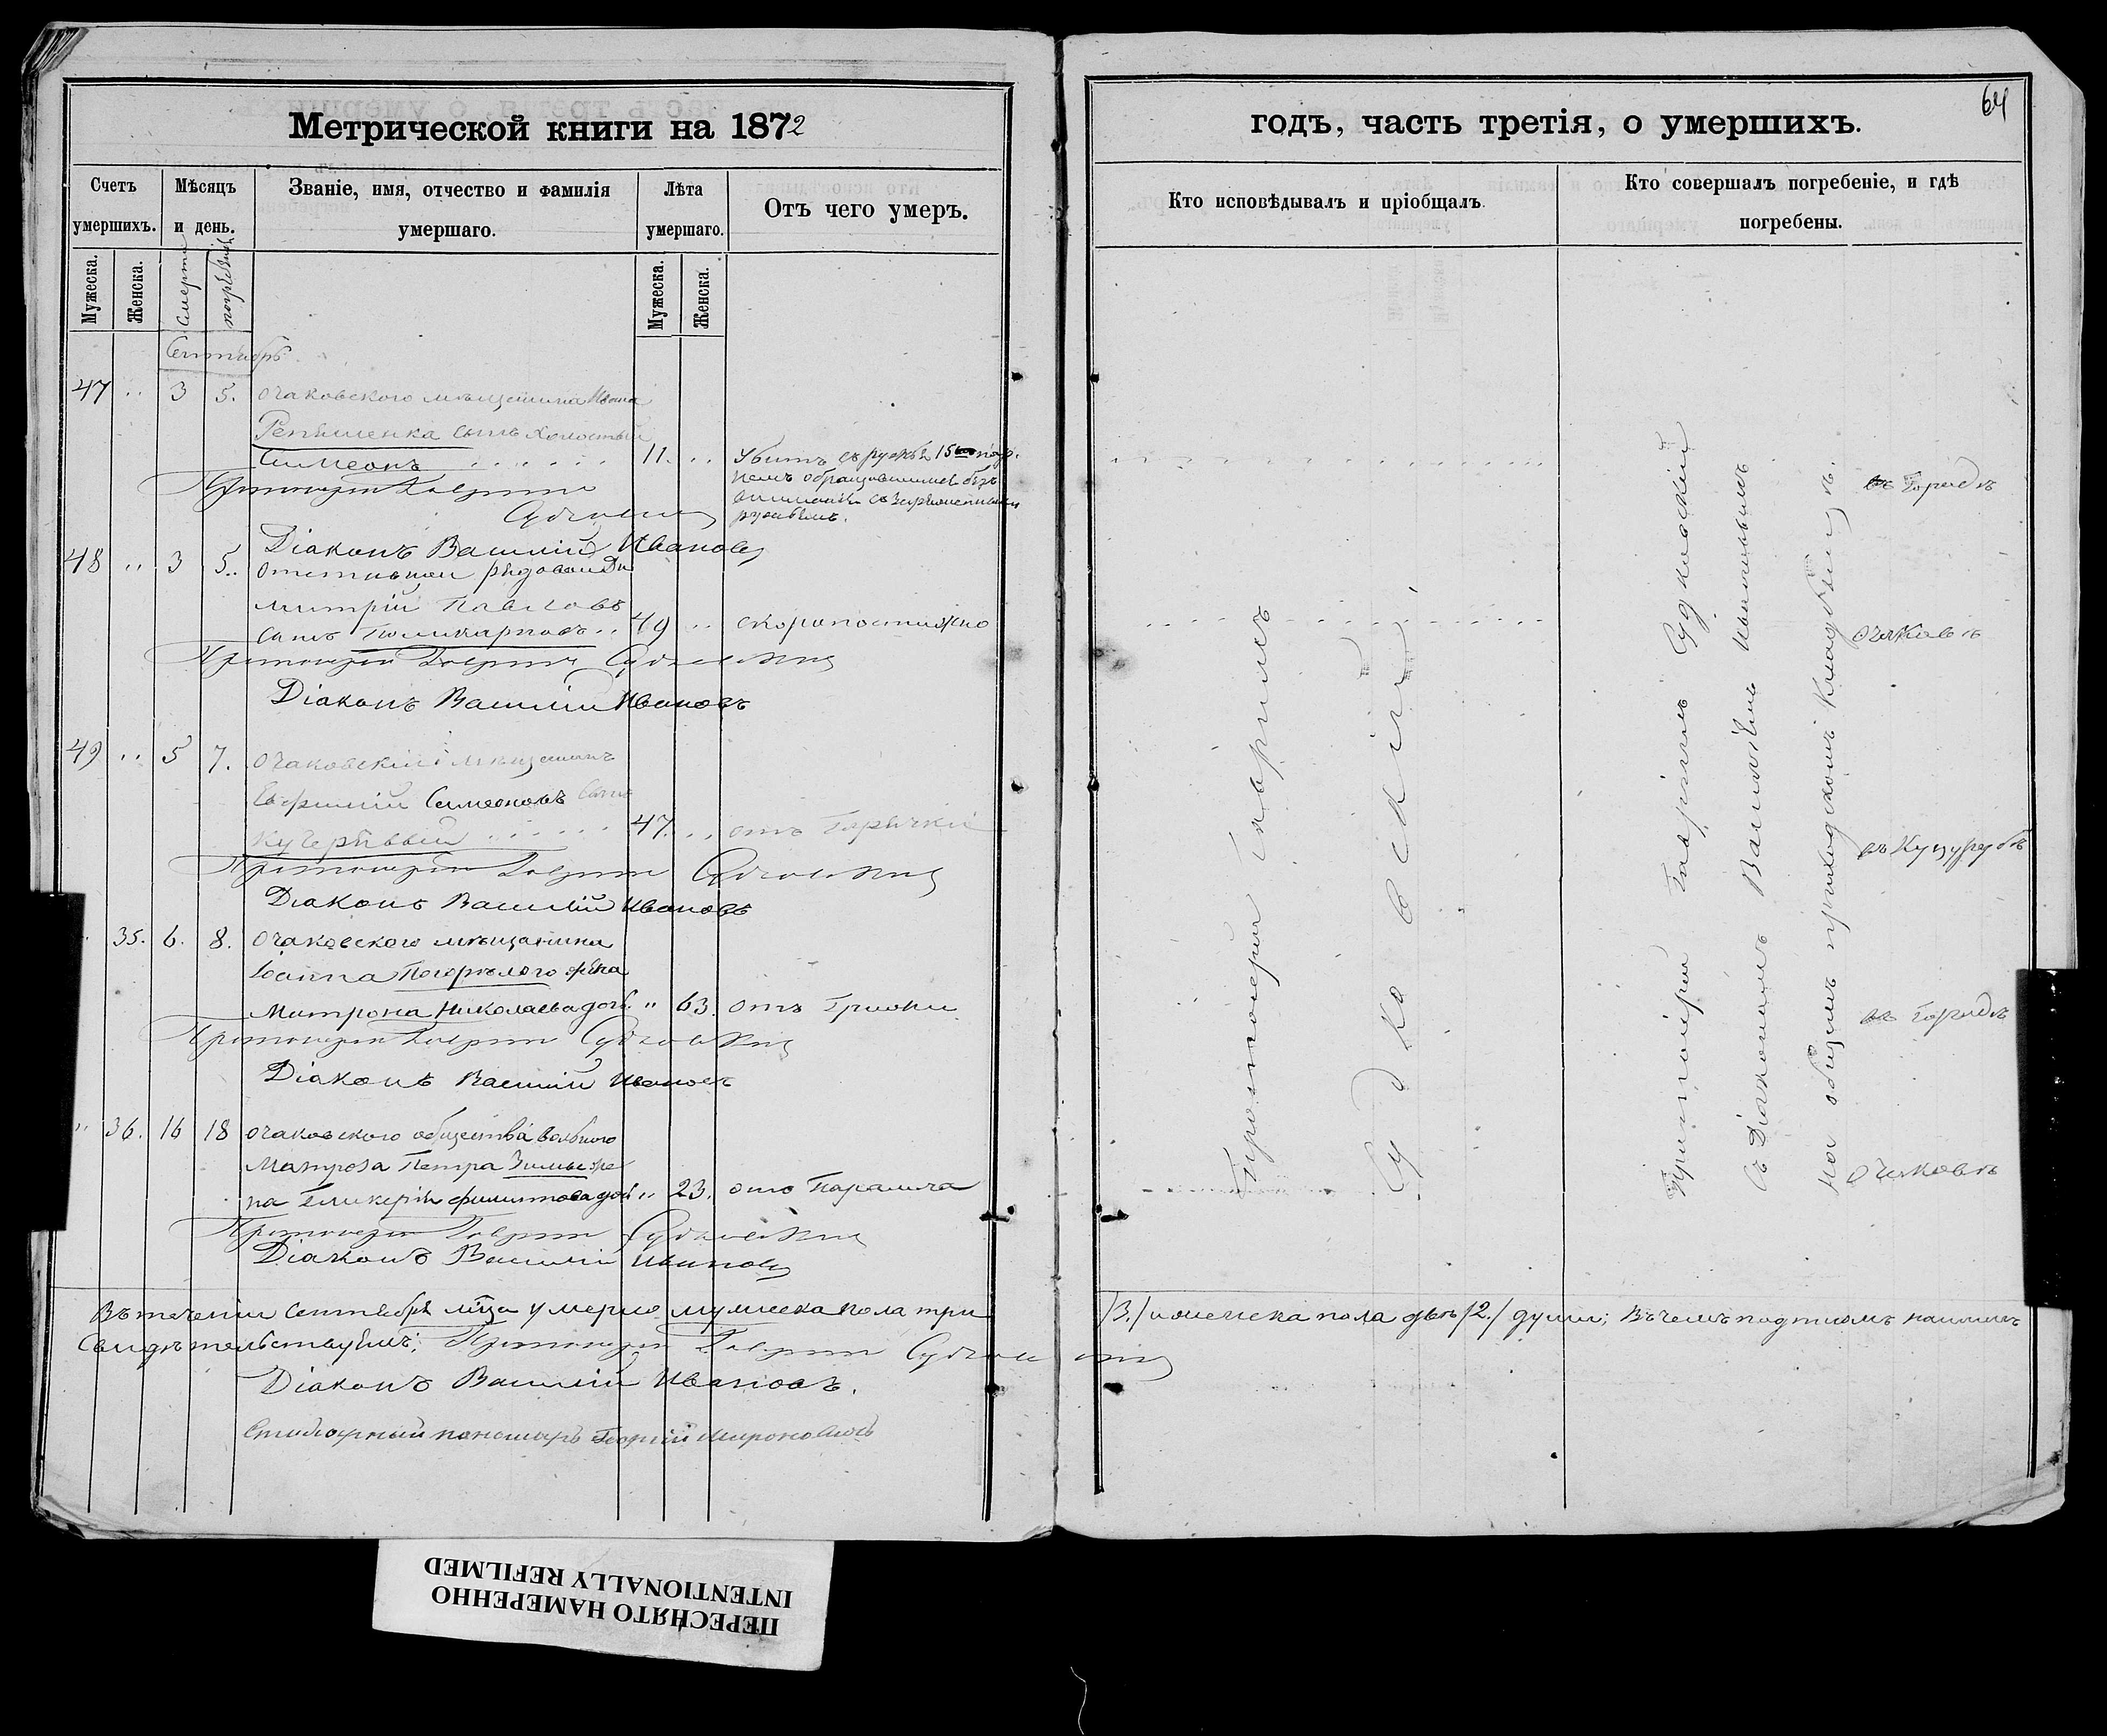 Метрической книги на 1872
Счетъ умершихъ.
Мѣсяцъ и день.
Званіе, имя, отчество и фамилія умершаго.
Лѣта умершаго.
Отъ чего умеръ.
Мужеска.
Женска.
Смерти
погребенія
Мужеска.
Женска.
Сентябрь
47 " 3 5. Очаковскаго мѣщанина Ивана
сынъ холостый
Симеонъ 11. " Убитъ
48 " 3 5. Отставной рядовой Ди
митрій Павловъ
сынъ Поликарповъ 49 " скоропостижно
Протоіерей Гавріилъ Судковскій
Діаконъ Василій Ивановъ
49 " 5 7. Очаковскій мѣщанинъ
Евфимій Симеоновъ сынъ
Кучерявый 47. " отъ Горячки
Протоіерей Гавріилъ Судковскій
Діаконъ Василій Ивановъ
" 35. 6. 8. Очаковскаго мѣщанина
Іоанна Погорѣлого жена
Матрона Николаева доч. " 63. отъ
Протоіерей Гавріилъ Судковскій
Діаконъ Василій Ивановъ
" 36. 16 18 Очаковского общества вольного
Матроза Петра же
на Гликерія Филиппова доч " 23. отъ Паралича
Протоіерей Гавріилъ Судковскій
Діаконъ Василій Ивановъ
Въ теченіи Сентября мѣца умерло мужеска пола три
свидѣтельствуемъ: Протоіерей Гавріилъ Судковскій
Діаконъ Василій Ивановъ.
пономарь Георгій
64
годъ, часть третія, о умершихъ.
Кто исповѣдывалъ и пріобщалъ.
Кто совершалъ погребеніе, и гдѣ погребены.
Протоіерей Гавріилъ
Судковскій
Протоіерей Гавріилъ Судковскій
съ Діакономъ Василіемъ Ивановымъ
на общемъ приходскомъ кладбищѣ.
въ Городѣ
Очаковѣ
въ Куцурубѣ
въ Городѣ
Очаковѣ
/3./ и женска пола двѣ /2./ души; Въ чемъ подписомъ нашимъ
ПЕРЕСНЯТО НАМЕРЕННО
INTENTIONALLY REFILMED